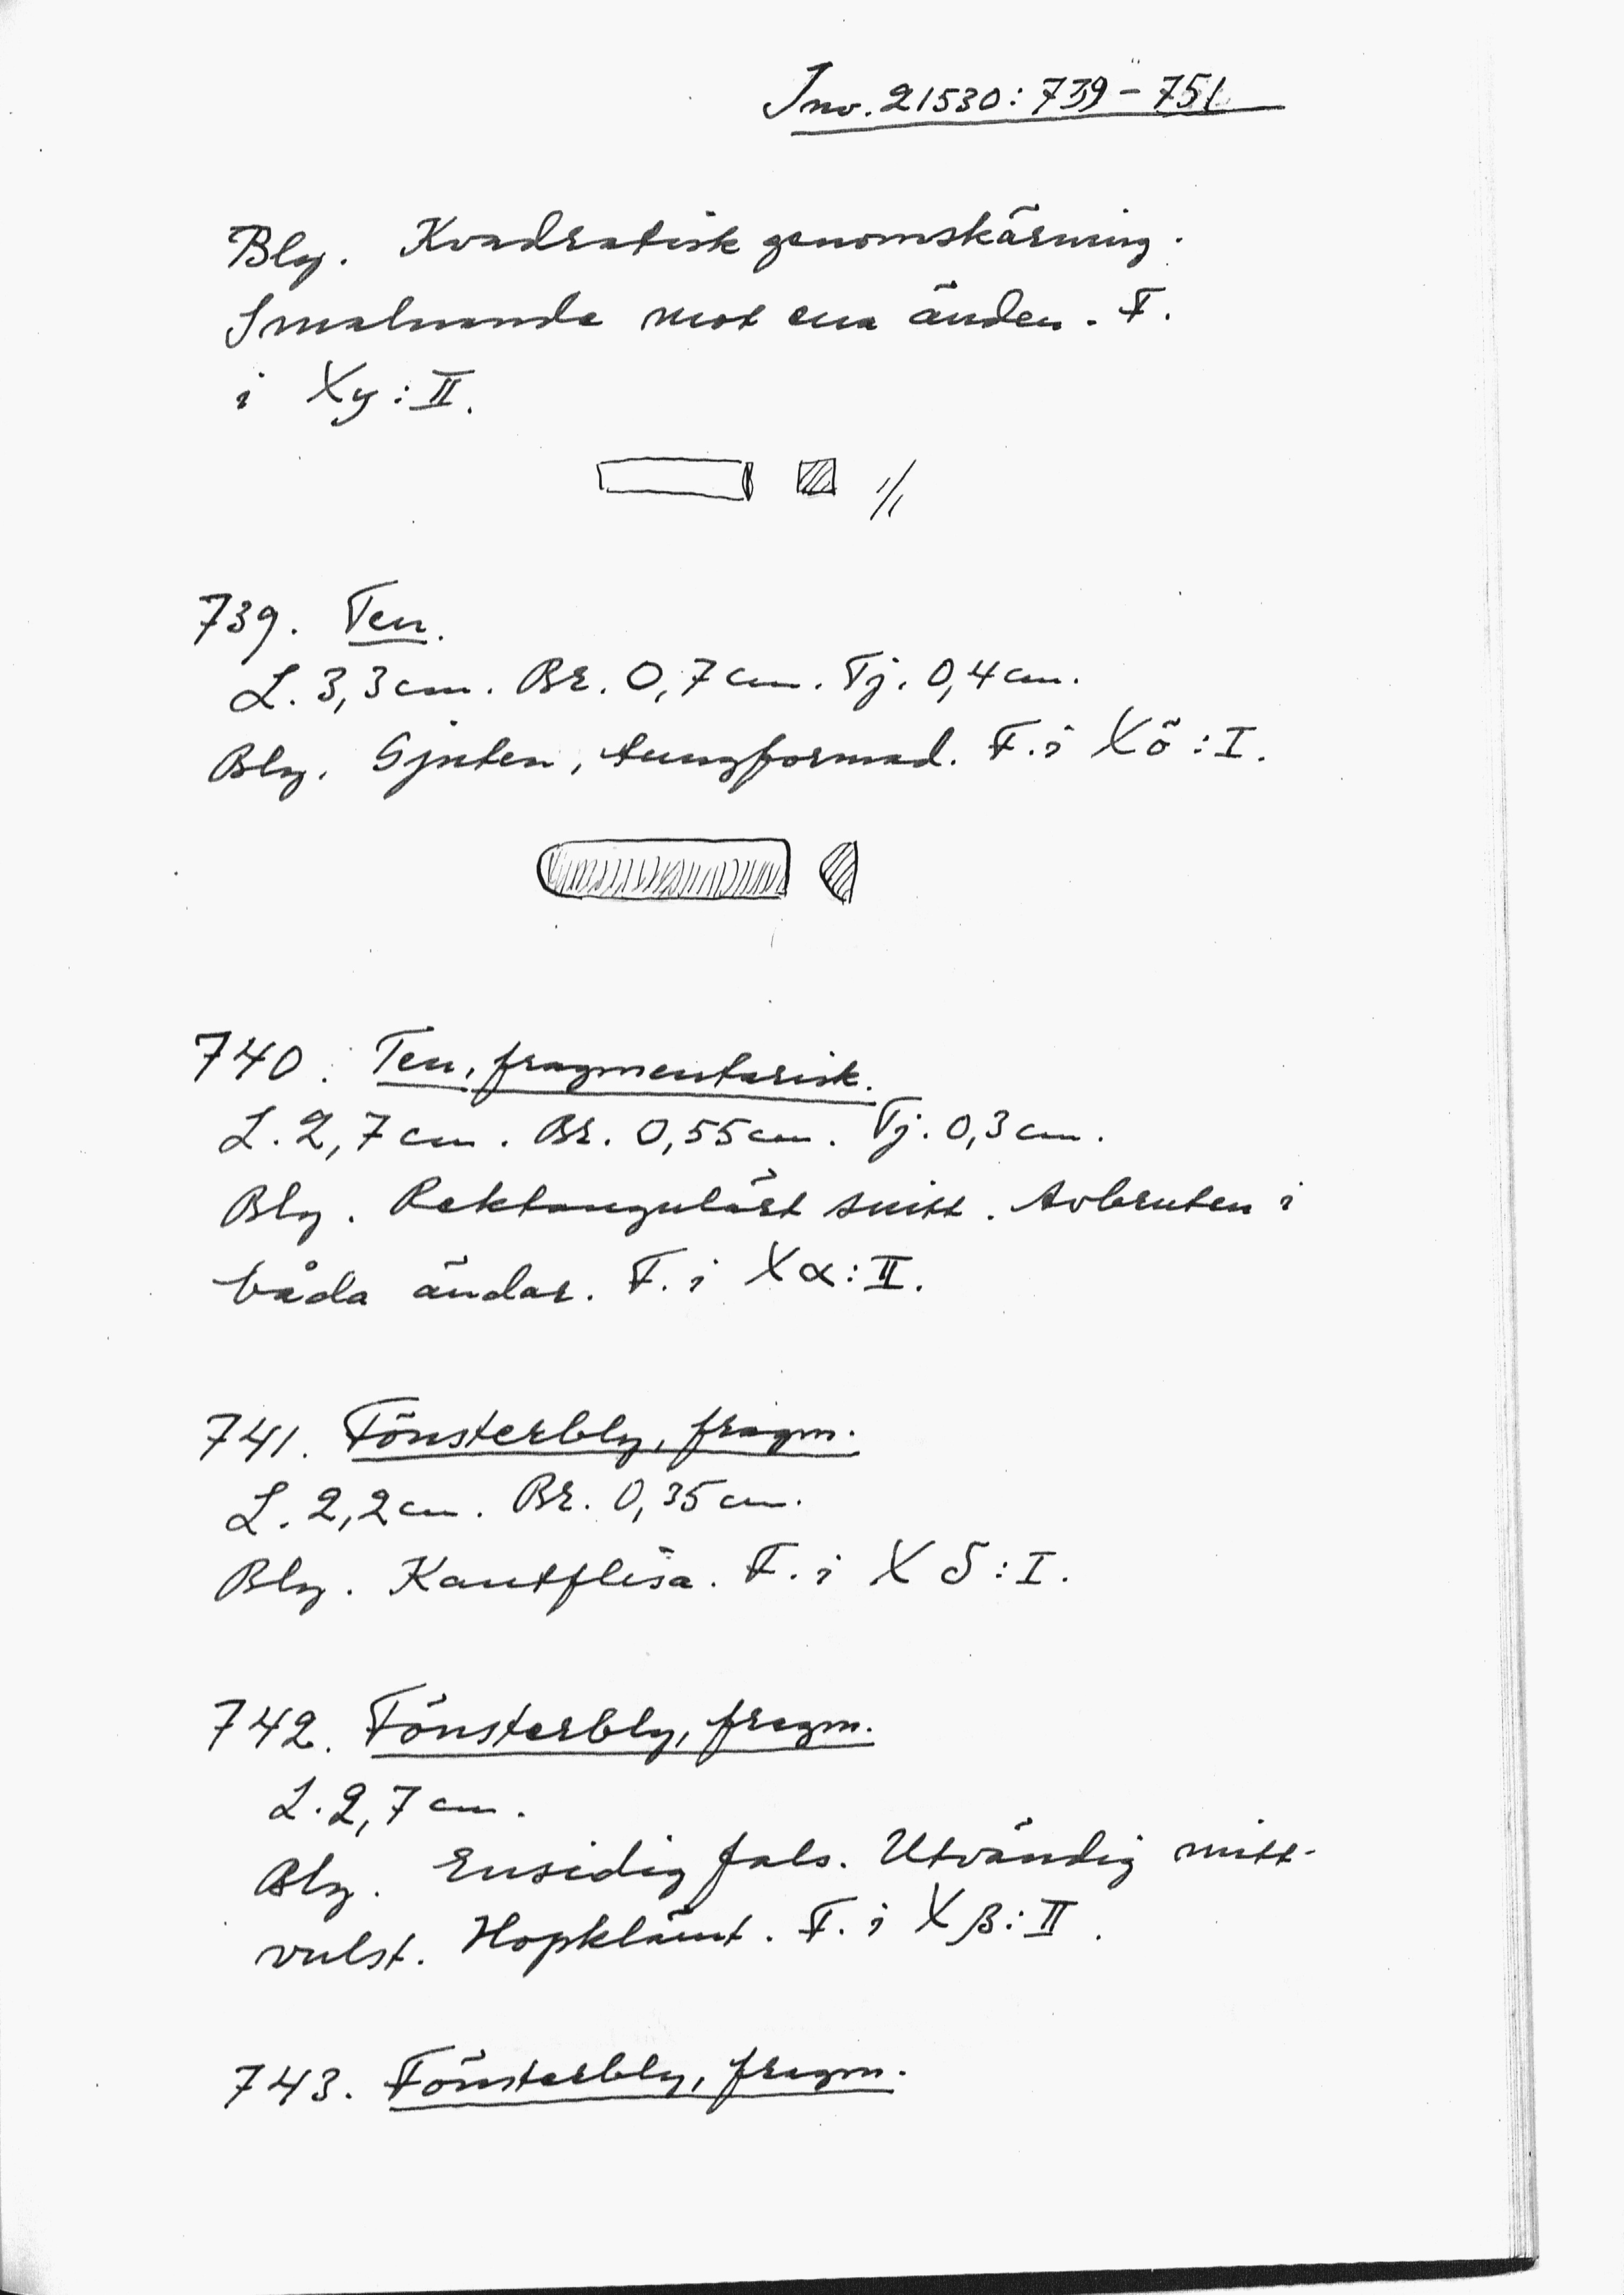 Inv. 21530: 739 - 751
Bly. Kvadratisk genomskärning.
Smalnande mot ena änden. F.
i Xy: II.
1/1
739. Ten.
L. 3,3 cm. Br. 0,7 cm. Tj. 0,4 cm.
Bly. Gjuten, tungformad. F. i Xö: I.
740. Ten, fragmentarisk.
L. 2,7 cm. Br. 0,55 cm. Tj. 0,3 cm.
Bly. Rektangulärt snitt. Avbruten i
båda ändar. F. i Xα: II.
741. Fönsterbly, fragm.
L. 2,2 cm. Br. 0,35 cm.
Bly. Kantflisa. F. i X δ: I.
742. Fönsterbly, fragm.
L. 2,7 cm.
Bly. Ensidig fals. Utvändig mitt-
vulst. Hopklämt. F. i X β: II.
743. Fönsterbly, fragm.